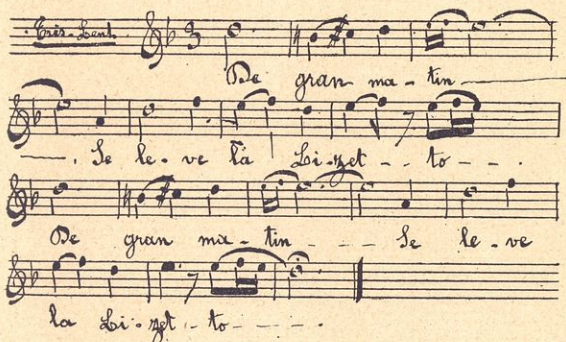 Très-Lent. 3
De gran ma-tin
. Se le-ve la Li-zet--to--.
De gran ma-tin--- Se le-ve
la Li-zet--to-----.